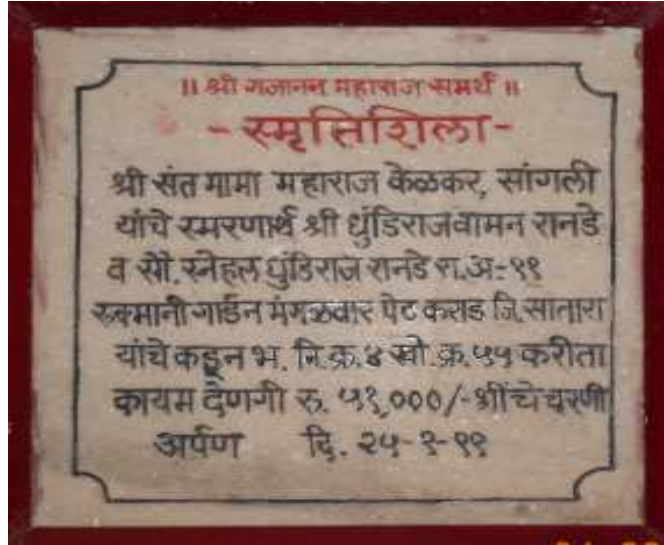 ॥ श्री गजानन महाराज समर्थ ॥
- स्मृतिशिला -
श्री संत मामा महाराज केळकर, सांगली
यांचे स्मरणार्थ श्री धुंडिराज वामन रानडे
व सौ. स्नेहल धुंडिराज रानडे रा. अ-११
रुक्मानी गार्डन मंगळवार पेट कराड जि. सातारा
यांचे कडून भ. नि. क्र. ४ खो. क्र. ५५ करीता
कायम देणगी रु. ५१,०००/- श्रींचे चरणी
अर्पण दि. २५-१-९९